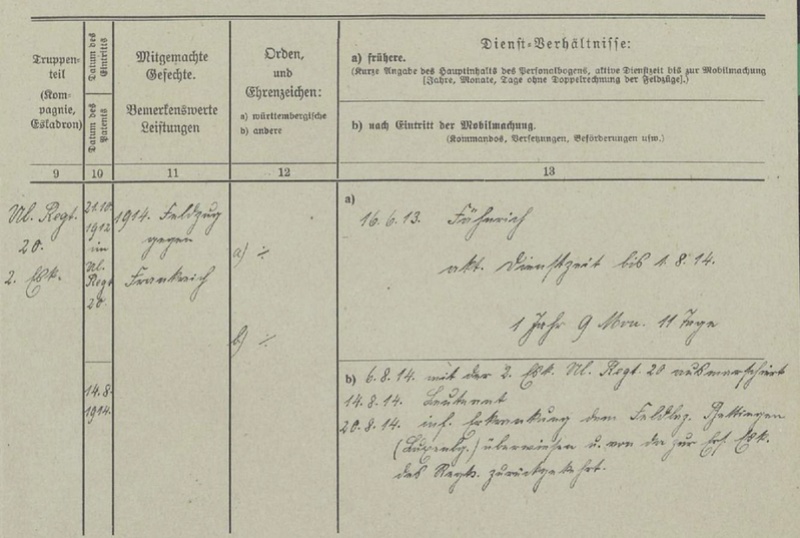 Truppen-
teil
(Kom-
pagnie,
Eskadron)
Datum des
Eintritts
Datum des
Patents
Mitgemachte
Gefechte.
Bemerkenswerte
Leistungen
Orden,
und
Ehrenzeichen:
a) württembergische
b) andere
Dienst-Verhältnisse:
a) frühere.
(Kurze Angabe des Hauptinhalts des Personalbogens, aktive Dienstzeit bis zur Mobilmachung
[Jahre, Monate, Tage ohne Doppelrechnung der Feldzüge].)
b) nach Eintritt der Mobilmachung.
(Kommandos, Versetzungen, Beförderungen usw.)
9
10
11
12
13
Ul. Regt.
20.
2. Esk.
21.10.
1912
im
Ul.
Regt
20.
14.8.
1914.
1914. Feldzug
gegen
Frankreich
a) ÷
b) ÷
a)
16.6.13. Fähnrich
akt. Dienstzeit bis 1.8.14.
1 Jahr 9 Mon. 11 Tage
b) 6.8.14. mit der 2. Esk. Ul. Regt. 20 ausmarschiert
14.8.14. Leutnant
20.8.14. inf. Erkrankung dem Feldlaz. Bettingen
überwiesen u. von da zur Ers. Esk.
des Regts. zurückgekehrt.